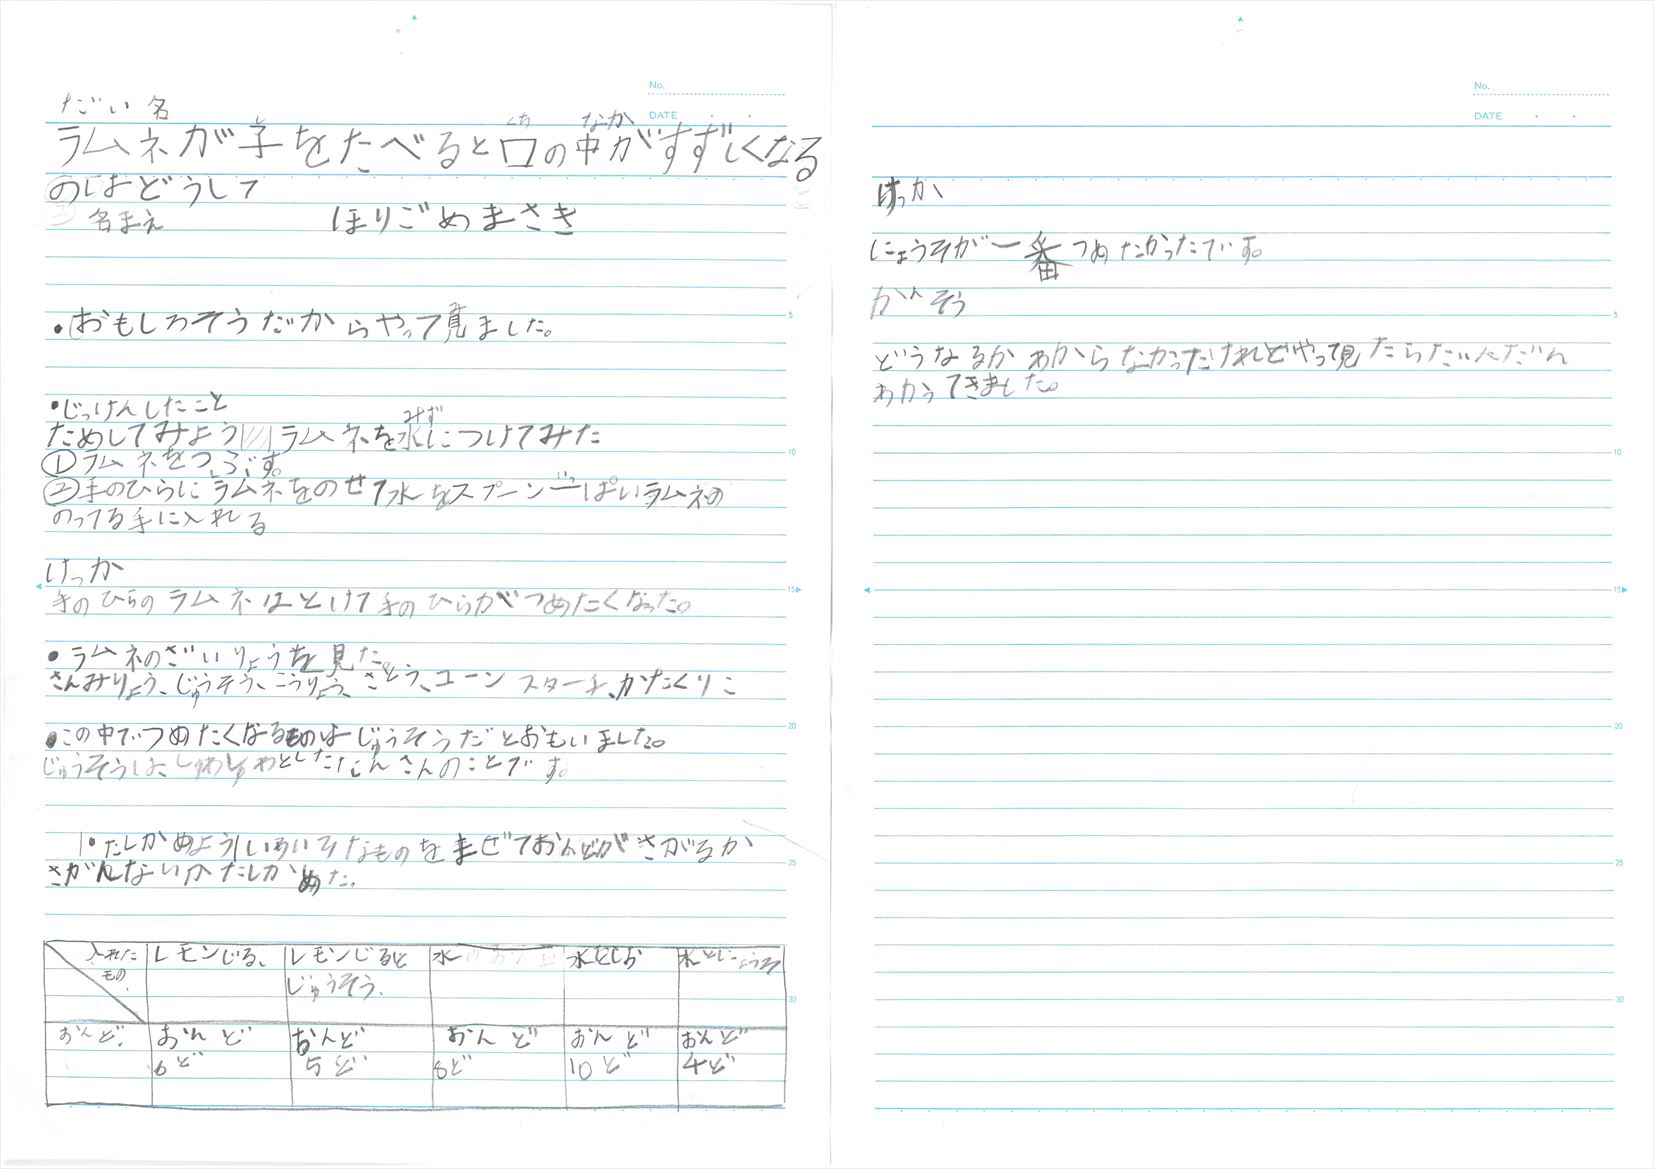 だい名
ラムネが子をたべると口の中がすずしくなる
くち なか
のはどうして
名まえ ほりごめまさき
・おもしろそうだからやって見ました。
・じっけんしたこと
ためしてみよう ラムネを水につけてみた
みず
①ラムネをつぶす。
②手のひらにラムネをのせて水をスプーン一ぱいラムネの
のってる手に入れる
けっか
手のひらのラムネはとけて手のひらがつめたくなった。
・ラムネのざいりょうを見た。
さんみりょう、じゅうそう、こうりょう、さとう、コーンスターチ、かたくりこ
・この中でつめたくなるものはじゅうそうだとおもいました。
じゅうそうは、しゅわしゅわとしたたんさんのことです。
・たしかめよう いろいろなものをまぜておんどがさがるか
さがんないかたしかめた。
入れたもの レモンじる、 レモンじると 水 水としお 水とにょうそ
じゅうそう、
おんど、 おんど おんど おんど おんど おんど
6ど 5ど 8ど 10ど 4ど
No.
DATE
5
10
15
20
25
30
No.
DATE
けっか
にょうそが一番つめたかったです。
かんそう
どうなるかわからなかっただけれどやって見たらだんだん
わかってきました。
5
10
15
20
25
30